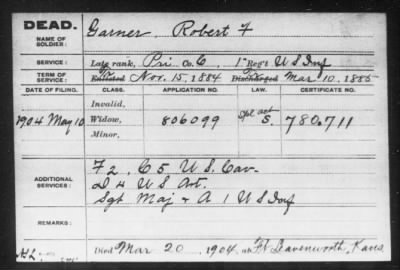 DEAD.
NAME OF SOLDIER:
Garner, Robert F
SERVICE:
Late rank, Pri Co. C, 1" Reg't U S Inf
TERM OF SERVICE:
Enlisted Nov. 15, 1884 Discharged Mar 10, 1885
DATE OF FILING. CLASS. APPLICATION NO. LAW. CERTIFICATE NO.
Invalid,
1904 May 10 Widow, 806099 Spl act S. 780.711
Minor,
ADDITIONAL SERVICES:
F 2, C 5 U S Cav.
D 4 U S Art.
Sgt Maj & A 1 U S Inf
REMARKS:
Died Mar 20, 1904, at Ft Leavenworth, Kans